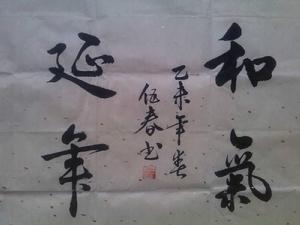 和氣
乙未年春
伍春书
延年